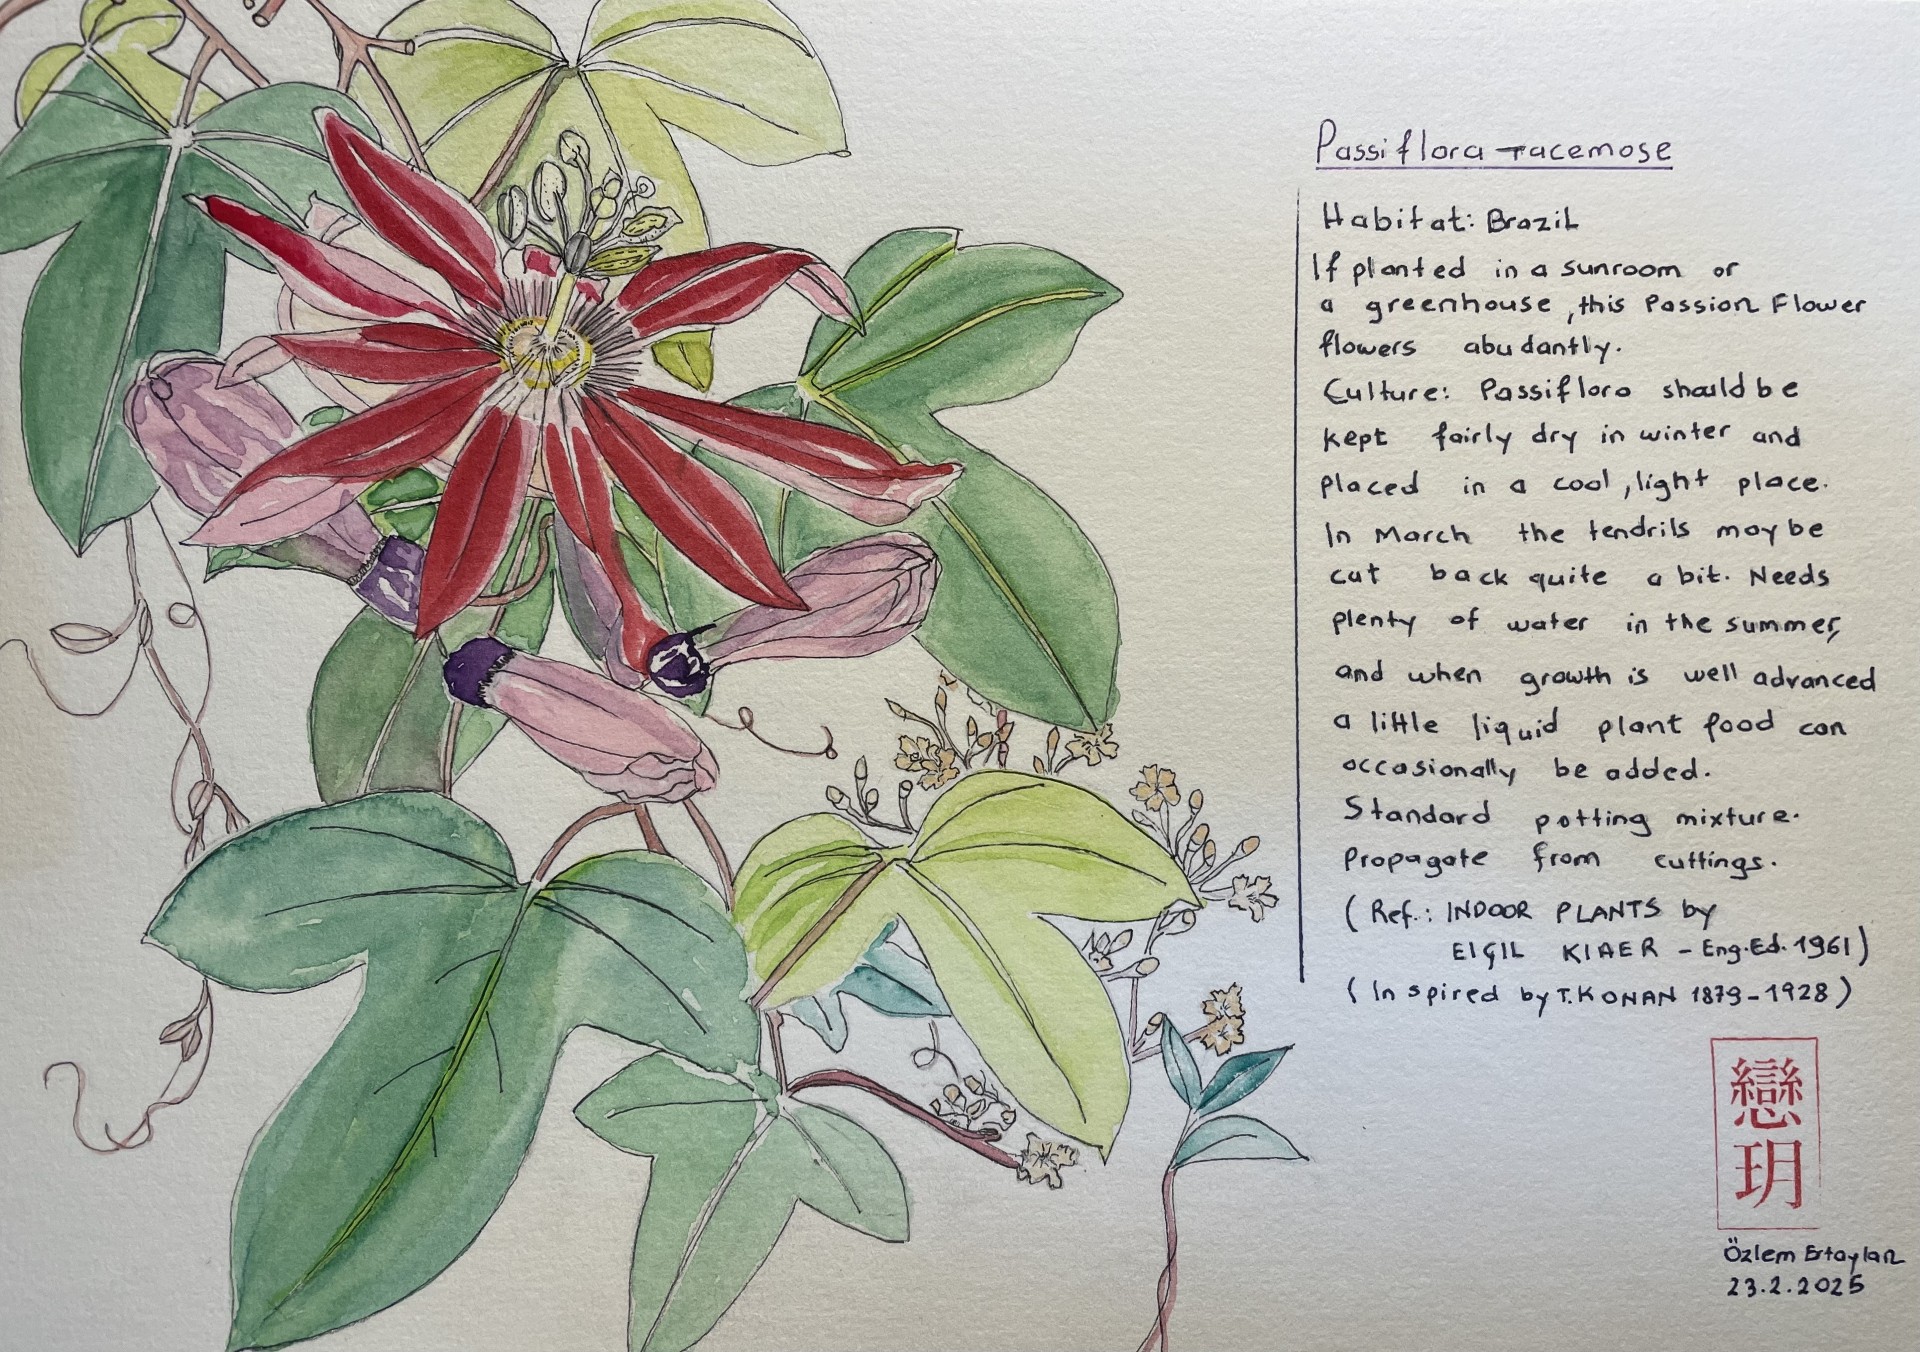 Passiflora racemose
Habitat: Brazil
If planted in a sunroom or
a greenhouse, this Passion Flower
flowers abudantly.
Culture: Passiflora should be
kept fairly dry in winter and
placed in a cool, light place.
In March the tendrils may be
cut back quite a bit. Needs
plenty of water in the summer,
and when growth is well advanced
a little liquid plant food can
occasionally be added.
Standard potting mixture.
Propagate from cuttings.
(Ref.: INDOOR PLANTS by
EIGIL KIAER - Eng.Ed. 1961)
(Inspired by T.KONAN 1879-1928)
戀
玥
Özlem Ertaylan
23.2.2025